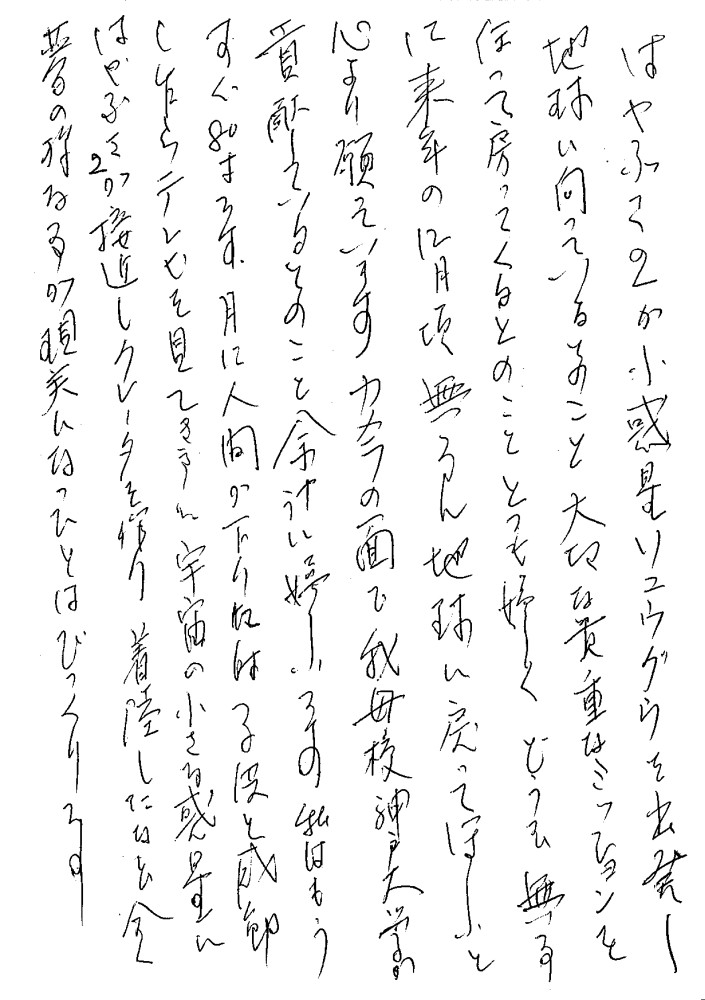 はやぶさ2が小惑星リュウグウを出発し
地球に向っているとのこと 大切な貴重なミッションを
住って戻ってくるとのこと とても嬉しく どうも無事
に来年の12月頃 無事 地球に戻って欲しいと
心より願っています カメラの面で我母校神戸大学が
貢献しているとのこと 余計に嬉しいです 私はもう
すぐ80才です 月に人間が下りた時 する 感動
しながらテレビを見てきました 宇宙の小さな惑星に
はやぶさ2が接近しクレータを作り 着陸したなど 全く
夢の様な事が現実になったとはびっくりです